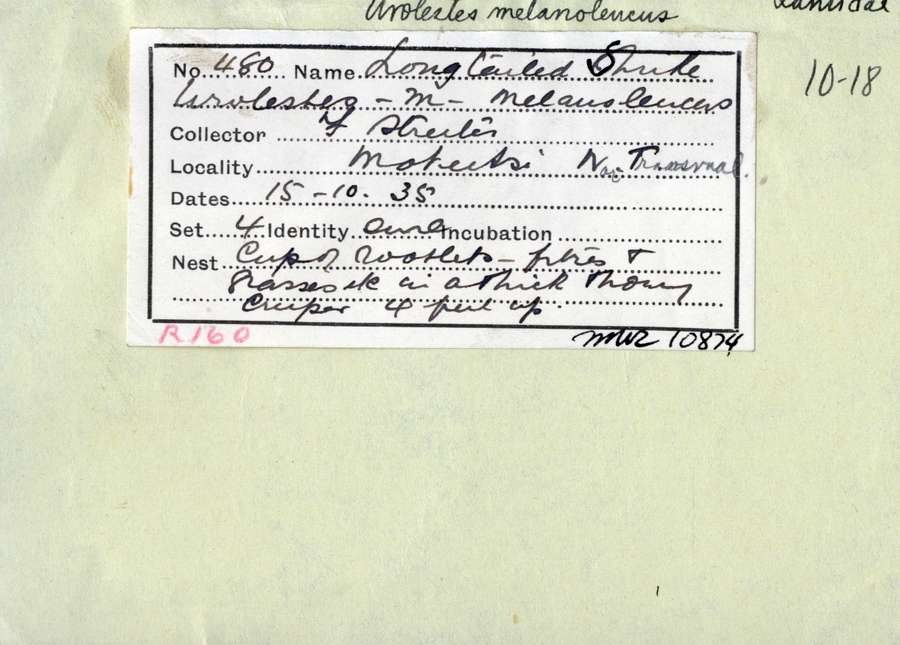 Urolestes melanoleucus
Laniidae
10-18
No. 480 Name Long tailed Shrike
Urolestes - m - melanoleucus
Collector F Streeter
Locality No. Transvaal.
Dates 15-10. 35
Set 4 Identity sure Incubation
Nest Cup of rootlets - fibres &
Grasses etc in a thick thorny
Creeper 4 feet up.
R160
10874